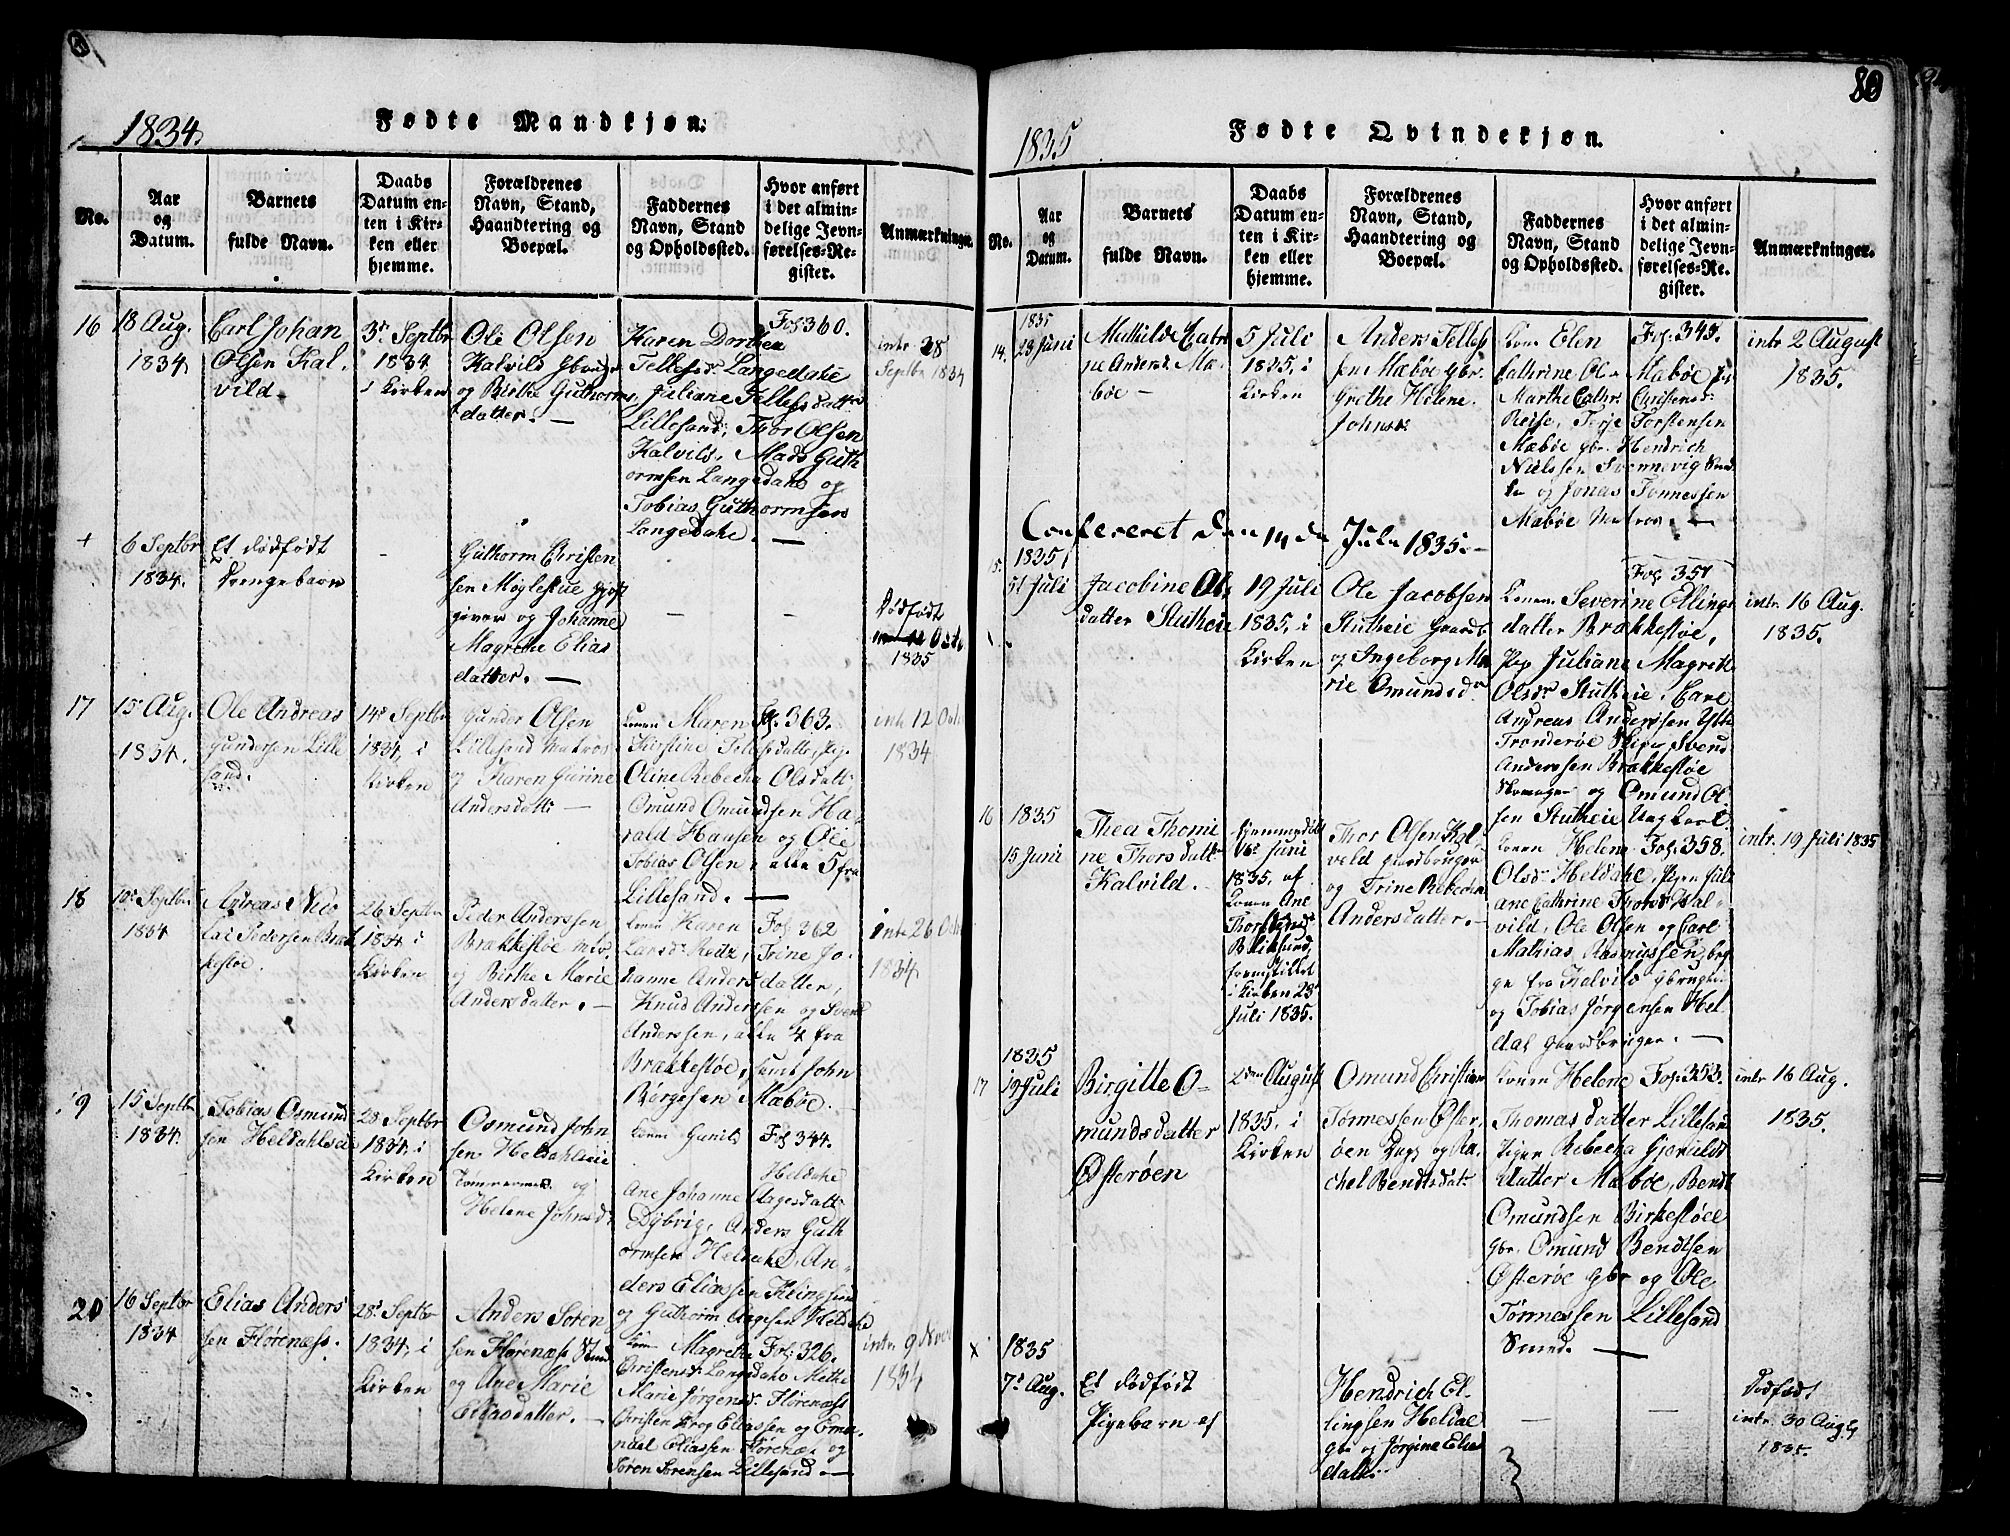 1834.
Fødte Mandkjøn.
No.
Aar
og
Datum.
Barnets
fulde Navn.
Daabs
Datum en-
ten i Kir-
ken eller
hjemme.
Forældrenes
Navn, Stand,
Haandtering og
Boepæl.
Faddernes
Navn, Stand
og Opholdssted.
Hvor anført
i det almin-
delige Jevn-
førelses-Re-
gister.
Anmærkninger.
16
18 Aug.
1834
Carl Johan
Olsen Kal-
vild.
3 Septbr
1834
i Kirken
Ole Olsen
Kalvild
og Birthe Guthorms
datter. —
Karen Dorthea
Tellefsdr Langedahe
Juliane Tellefsdatter
Lillesand, Thor Olsen
Kalvild, Mads Guth
ormsen Langedahe og
Tobias Guthormsen
Langedahe. —
Fol 360.
intr 28
Septbr 1834
+
6 Septbr
1834.
Et dødfødt
Drengebarn
Guthorm Christen
sen Møglestue gjest
giver og Johanne
Magrethe Elias
datter. —
Dødfødt
1835
17
15 Aug.
1834.
Ole Andreas
Gundersen Lille
sand.
14 Septbr
1834, i
Kirken
Gunder Olsen
Lillesand Matros
og Karen Gurine
Andersdatter —
konen Maren
Kirstine
Oline Rebecka Olsdatt:
Omund Omundsen Ha-
rald Hansen og Ole
Tobias Olsen, alle 5 fra
Lillesand. —
Fol. 363.
intr 12 Octr
1834
18
19 Septbr
1834
Andreas Nico
lai Pedersen Bræk
kestøe.
26 Septbr
1834 i
Kirken
Peder Anderssen
Brækkestøe
og Birthe Marie
Andersdatter. —
konen Karen
Larsdr Trine Jo-
hanne Andersdatter,
Knud Anderssen og Svend
Anderssen, alle 4 fra
Brækkestøe, samt John
Børgesen Mæbøe.
Fol. 362
intr 26 Octr
1834
19
15 Septbr
1834.
Tobias Osmund
sen Heldahlseie
28 Septbr
1834, i
Kirken
Osmund John
sen Heldahlseie
Tømmermand og
Helene Johnsd.
konen Gunild
Heldahe
Ane Johanne Aagesdatt:
Dybvig, Anders Guth
ormsen Heldahe, An-
ders Eliassen Klingsund
og Guthorm Aagesen Heldahe
Fol 344.
20
16 Septbr
1834
Elias Anders
sen Flørenæss.
28 Septbr
1834, i
Kirken
Anders Søren
sen Flørenæss
og Ane Marie
Eliasdatter. —
konen Magrethe
Christensdr Langedahe Mette
Marie Jørgensdr Flørenæss
Christen Krog Eliassen og Ema-
nuel Eliassen Flørenæs og
Søren Sørensen Lillesand. —
Fol: 326.
intr. 9 Novr
1834
80
1835
Fødte Qvindekjøn.
No.
Aar
og
Datum.
Barnets
fulde Navn.
Daabs
Datum en-
ten i Kir-
ken eller
hjemme.
Forældrenes
Navn, Stand,
Haandtering og
Boepæl.
Faddernes
Navn, Stand
og Opholdsted.
Hvor anført
i det almin-
delige Jevn-
førelses-Re-
gister.
Anmærkninger.
14.
1835
23 Juni
Mathilde Cathri
ne Andersd. Mæ-
bøe —
5 Juli
1835, i
Kirken
Anders Tellef
sen Mæbøe gbr.
Grethe Helene
Johnsd.
konen Elen
Cathrine Mæbøe
Marthe Cathr. Christensd:
Terje Torstensen
Mæbøe gbr. Hendrich
Nielssen Svennevig
og Jonas Tønnessen
Mæbøe Matros. —
Fol. 345.
intr 2 August
1835.
Confereret den 14de Julii 1835. —
15.
1835
Juli
Jacobine Ols
datter Stutheie
19 Juli
1835, i
Kirken
Ole Jacobsen
Stutheie Gaardb.
og Ingeborg Ma
rie Omundsdr
konen Severine Ellings
datter Brækkestøe,
Pige Juliane Magrethe
Olsdr Stutheie, Carl
Andreas Anderssen Ytre
Trønderøe Svend
Anderssen Brækkestøe
og Omund Ol
sen Stutheie Ungkarl
Fol. 351
intr. 16 Aug.
1835.
16
1835
15 Juni
Thea Thomi
ne Thorsdatter
Kalvild. —
hjemmedøbt
16 Juni
1835, af
konen Ane
Bliksund,
fremstillet
i Kirken
Juli 1835.
Thor Olsen Kal
veld gaardbruger
og Trine Rebecka
Andersdatter. —
konen Helene
Olsdr Heldahe, Pigen Juli
ane Cathrine Thorsdr Kal-
vild, Ole Olsen og Carl
Mathias Rasmussen, beg
ge fra Kalvild
og Tobias Jørgensen Hel
dal gaardbruger. —
Fol. 358.
intr. 19 Juli 1835
17
1835
19 Juli
Birgitte O-
mundsdatter
Østerøen
2den August
1835, i
Kirken
Omund Christian
Tønnessen Øster
øen og Ra-
chel Bendtsdatr
konen Helene
Thomasdatter Lillesand
Pigen Rebecka Gjerulds
datter Mæbøe, Bendt
Omundsen Birkestøe
gbr. Omund Bendtsen
Østerøe gbr og Ole
Tønnessen Lillesand
Smed. —
Fol. 353.
intr 16 Aug.
1835.
x
1835
7 Aug.
Et dødfødt
Pigebarn af
Hendrich El-
lingsen Heldal
gbr og Jørgine Elias
datter.
Dødfødt
intr. 30 Aug.
1835.